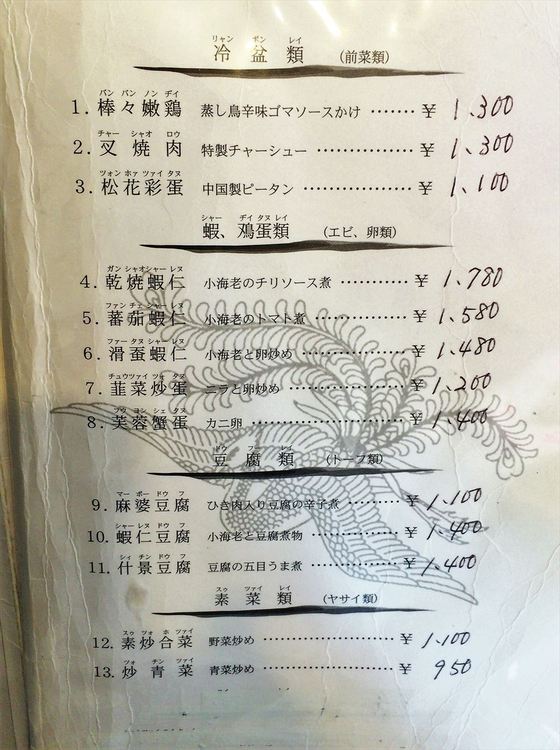 リャン ポン レイ
冷盆類 (前菜類)
バン バン ノン ヂイ
1. 棒々嫩鶏 蒸し鳥辛味ゴマソースかけ ……… ¥ 1、300
チャー シャオ ロウ
2. 叉焼肉 特製チャーシュー ……… ¥ 1、300
ツォン ホァ ツァイ タヌ
3. 松花彩蛋 中国製ピータン ……… ¥ 1、100
シャー ヂイ タヌ レイ
蝦、鶏蛋類 (エビ、卵類)
ガン シャオ シャー レヌ
4. 乾焼蝦仁 小海老のチリソース煮 ……… ¥ 1、780
ファン チェ シャー レヌ
5. 蕃茄蝦仁 小海老のトマト煮 ……… ¥ 1、580
ファー タヌ シャー レヌ
6. 滑蛋蝦仁 小海老と卵炒め ……… ¥ 1、480
チュウツァイ ツォ タヌ
7. 韮菜炒蛋 ニラと卵炒め ……… ¥ 1、200
フウ ヨン シェ タヌ
8. 芙蓉蟹蛋 カニ卵 ……… ¥ 1、400
ドウ フー レイ
豆腐類 (トーフ類)
マー ポー ドウ フ
9. 麻婆豆腐 ひき肉入り豆腐の辛子煮 ……… ¥ 1、100
シャー レヌ ドウ フ
10. 蝦仁豆腐 小海老と豆腐煮物 ……… ¥ 1、400
シィ チン ドウ フ
11. 什景豆腐 豆腐の五目うま煮 ……… ¥ 1、400
スゥ ツァイ レイ
素菜類 (ヤサイ類)
スゥ ツォ ホ ツァイ
12. 素炒合菜 野菜炒め ……… ¥ 1、100
ツォ チン ツァイ
13. 炒青菜 青菜炒め ……… ¥ 950